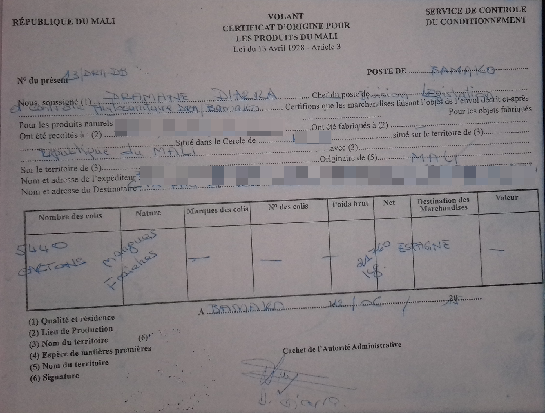 RÉPUBLIQUE DU MALI
VOLANT
CERTIFICAT D'ORIGINE POUR
LES PRODUITS DU MALI
Loi du 13 Avril 1978 - Article 3
SERVICE DE CONTROLE
DU CONDITIONNEMENT
N° du présent
POSTE DE BAMAKO
Nous soussigné (1) DRAMANE DIARRA Chef du poste de
Certifions que les marchandises faisant l'objet de l'envoi décrit ci-après
Pour les produits naturels
Pour les objets fabriqués
Ont été récoltés à (2)
Ont été fabriqués à (2)
Situé dans le Cercle de
situé sur le territoire de (3)
République du MALI
avec (3)
Sur le territoire de (3)
Originaire de (5) MALI
Nom et adresse de l'expéditeur
Nom et adresse du Destinataire
Nombre des colis Nature Marques des colis N° des colis Poids brut Net Destination des Marchandises Valeur
5440 CARTONS Mangues Fraiches — — — ESPAGNE —
A BAMAKO
(1) Qualité et résidence
(2) Lieu de Production
(3) Nom du territoire
(6)
(4) Espèce de matières premières
(5) Nom du territoire
(6) Signature
Cachet de l'Autorité Administrative